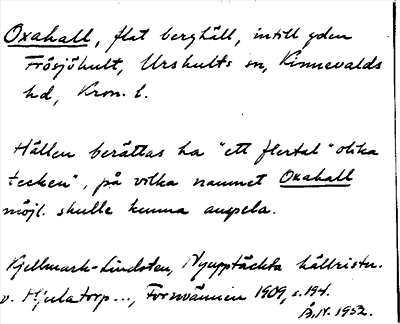 Oxahall, flat berghäll, intill gden
Frösjöhult, Urshults sn, Kinnevalds
hd, Kron. l.
Hällen berättas ha "ett flertal "olika
tecken", på vilka namnet Oxahall
möjl. skulle kunna anspela.
Kjellmark-Lindsten, Nyupptäckta hällristn.
v. Hjulatorp..., Fornvännen 1909, s. 194.
1952.